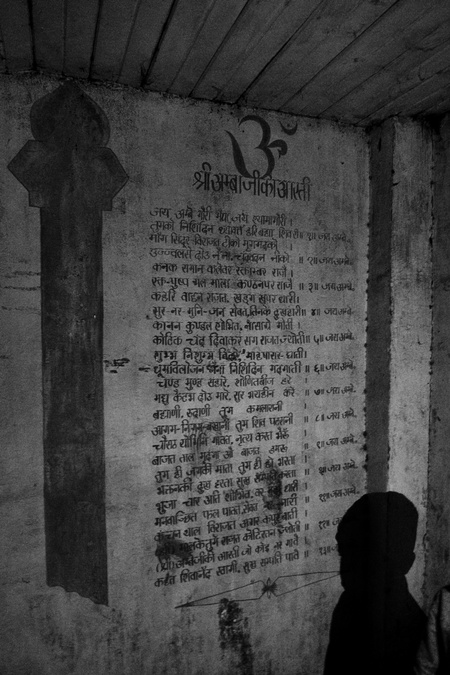 ॐ
श्री अम्बाजी की आरती
जय अम्बे गौरी मैया जय श्यामागौरी ।
तुमको निशिदिन ध्यावत हरि ब्रह्मा शिवरी ॥ १॥ जय अम्बे.
माँग सिंदूर विराजत टीको मृगमदको
उज्ज्वलसे दोउ नैना, चन्द्रवदन नीको ॥ २॥ जय अम्बे.
कनक समान कलेवर रक्ताम्बर राजै ।
रक्त-पुष्प गल माला कण्ठनपर साजै ॥ ३॥ जय अम्बे.
केहरि वाहन राजत, खड्ग खपर धारी।
सुर-नर-मुनि-जन सेवत, तिनके दुखहारी॥ ४॥ जय अम्बे.
कानन कुण्डल शोभित, नासाग्रे मोती ।
कोटिक चंद्र दिवाकर सम राजत ज्योती॥ ५॥ जय अम्बे.
शुम्भ निशुम्भ महिषासुर घाती।
धूम्रविलोचन नैना निशिदिन मदमाती ॥ ६॥ जय अम्बे.
चण्ड मुण्ड संहारे, शोणितबीज हरे ।
मधु कैटभ दोउ मारे, सुर भयहीन करे ॥ ७॥ जय अम्बे.
ब्रह्माणी, रुद्राणी तुम कमलारानी
आगम-निगम-बखानी तुम शिव पटरानी ॥ ८॥ जय अम्बे.
चौंसठ योगिनि गावत, नृत्य करत भैरूँ
बाजत ताल मृदंगा औ बाजत डमरू ॥ ९॥ जय अम्बे.
तुम ही जगकी माता तुम ही हो भरता
भक्तनकी दुख हरता सुख
भुजा चार अति शोभित, वर
मनवाञ्छित फल पावत, सेवत नर नारी
कंचन थाल विराजत अगर कपूर बाती
राजत कोटिरतन ज्योती
अम्बेजीकी आरती जो कोइ नर गावै
कहत शिवानंद स्वामी, सुख सम्पति पावै